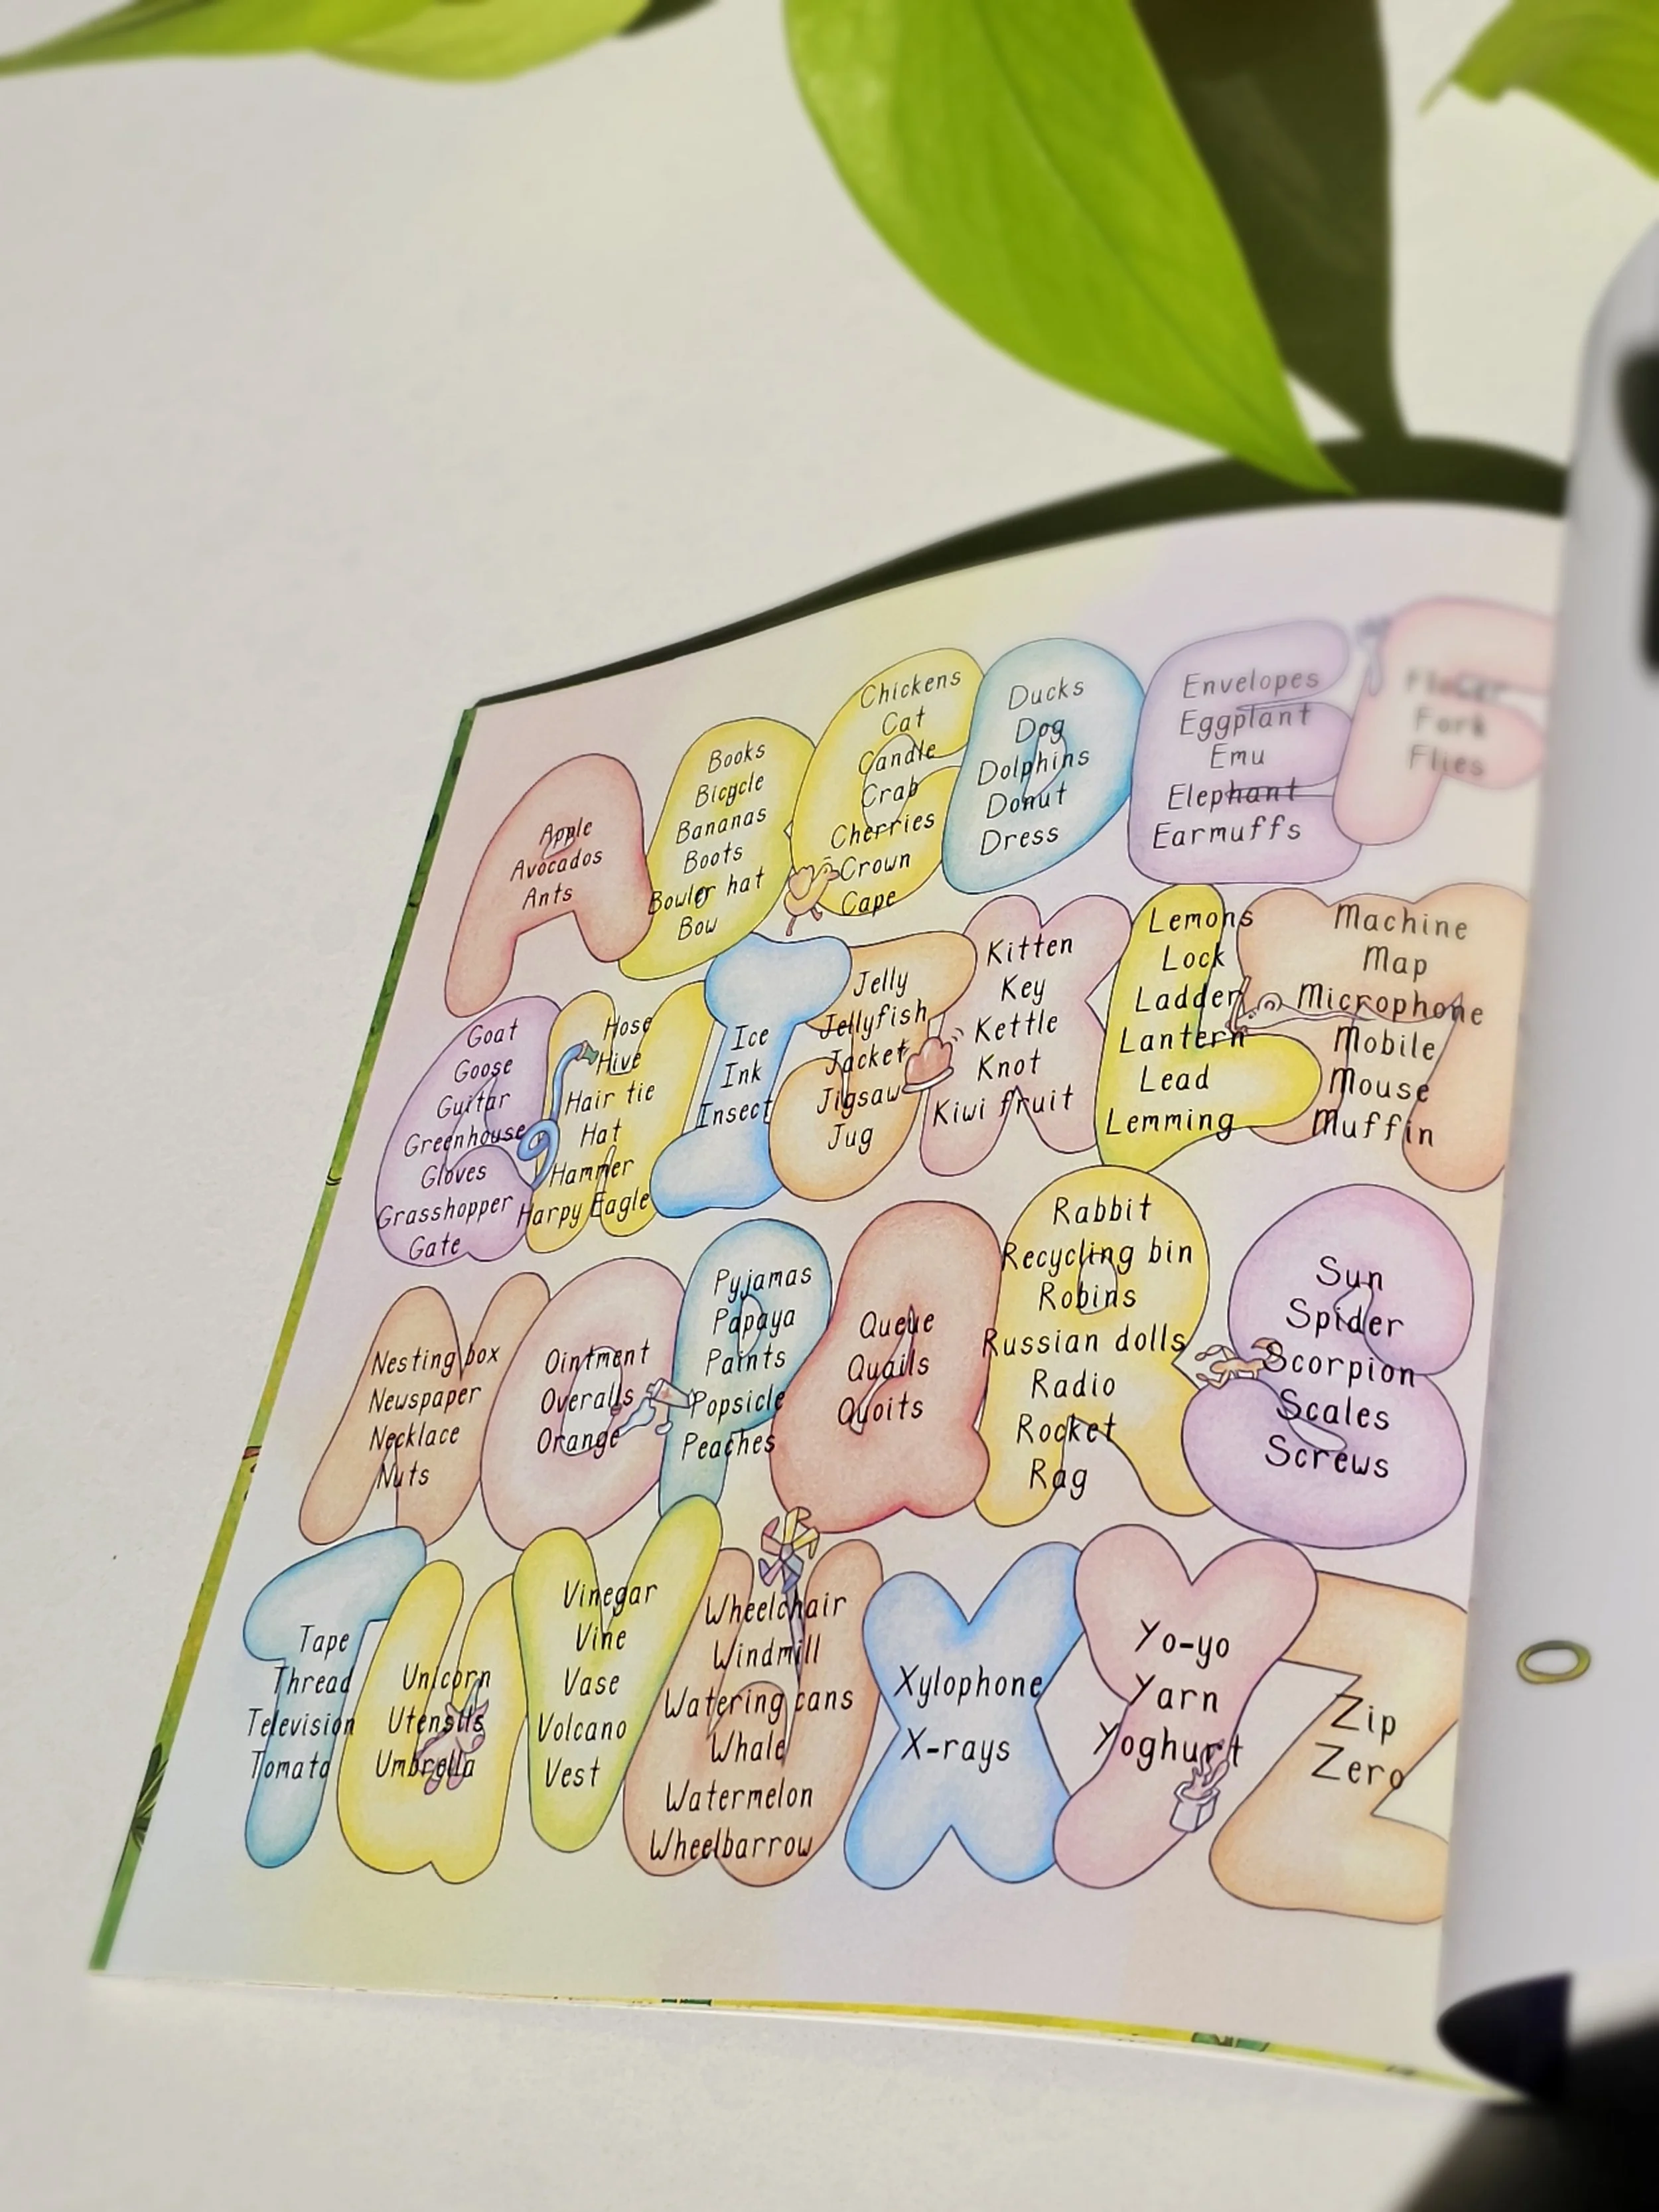 Apple
Avocados
Ants
Books
Bicycle
Bananas
Boots
Bowler hat
Bow
Chickens
Cat
Candle
Crab
Cherries
Crown
Cape
Ducks
Dog
Dolphins
Donut
Dress
Envelopes
Eggplant
Emu
Elephant
Earmuffs
Fork
Flies
Goat
Goose
Guitar
Greenhouse
Gloves
Grasshopper
Gate
Hose
Hive
Hair tie
Hat
Hammer
Harpy Eagle
Ice
Ink
Insect
Jelly
Jellyfish
Jacket
Jigsaw
Jug
Kitten
Key
Kettle
Knot
Kiwi fruit
Lemons
Lock
Ladder
Lantern
Lead
Lemming
Machine
Map
Microphone
Mobile
Mouse
Muffin
Nesting box
Newspaper
Necklace
Nuts
Ointment
Overalls
Orange
Pyjamas
Papaya
Paints
Popsicle
Peaches
Queue
Quails
Quoits
Rabbit
Recycling bin
Robins
Russian dolls
Radio
Rocket
Rag
Sun
Spider
Scorpion
Scales
Screws
Tape
Thread
Television
Tomato
Unicorn
Utensils
Umbrella
Vinegar
Vine
Vase
Volcano
Vest
Wheelchair
Windmill
Watering cans
Whale
Watermelon
Wheelbarrow
Xylophone
X-rays
Yo-yo
Yarn
Yoghurt
Zip
Zero